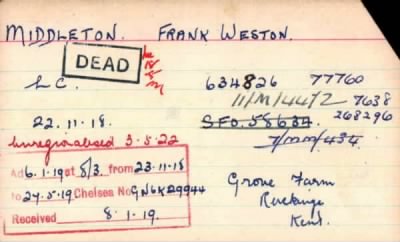 MIDDLETON. FRANK WESTON.
DEAD
L C. 634826 77760
11/M/4472 7638
22.11.18. SFO.58634. 268296
Unregionalised 3.5.22 7/MM/434.
Ad 6.1.19 at 8/3. from 23.11.18
to 24.5.19 Chelsea No GN6K29944
Received 8.1.19.
Grove Farm
Ruckinge
Kent.